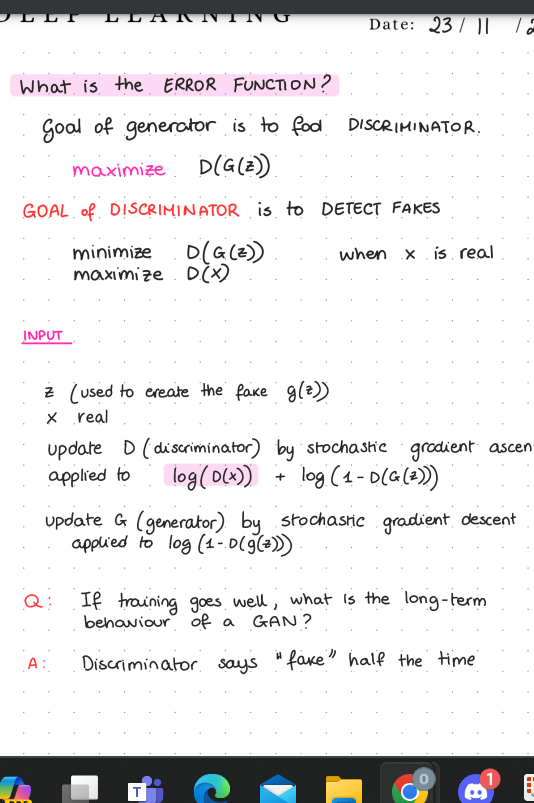 DEEP LEARNING
Date: 23 / 11 / 2
What is the ERROR FUNCTION?
Goal of generator is to fool DISCRIMINATOR.
maximize D(G(z))
GOAL of DISCRIMINATOR is to DETECT FAKES
minimize D(G(z)) when x is real
maximize D(x)
INPUT
z (used to create the fake g(z))
x real
update D (discriminator) by stochastic gradient ascen
applied to log(D(x)) + log(1-D(G(z)))
update G (generator) by stochastic gradient descent
applied to log(1-D(g(z)))
Q: If training goes well, what is the long-term
behaviour of a GAN?
A: Discriminator says "fake" half the time
T
0
1